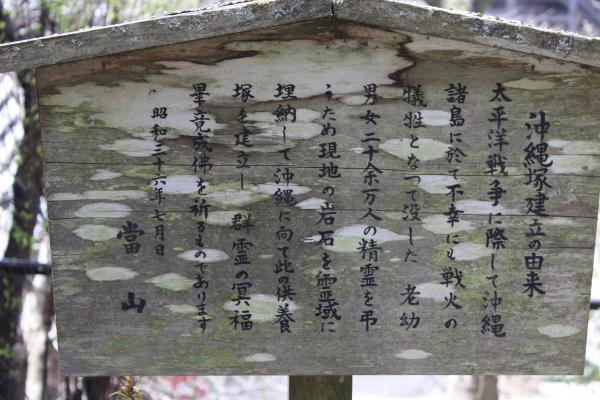 沖縄塚建立の由来
太平洋戦争に際して沖縄
諸島に於て不幸にも戦火の
犠牲となつて没した 老幼
男女二十余万人の精霊を弔
うため現地の岩石を霊域に
埋納して沖縄に向て此の供養
塚を建立し 群霊の冥福
畢竟成佛を祈るものであります
昭和三十六年七月日
當山